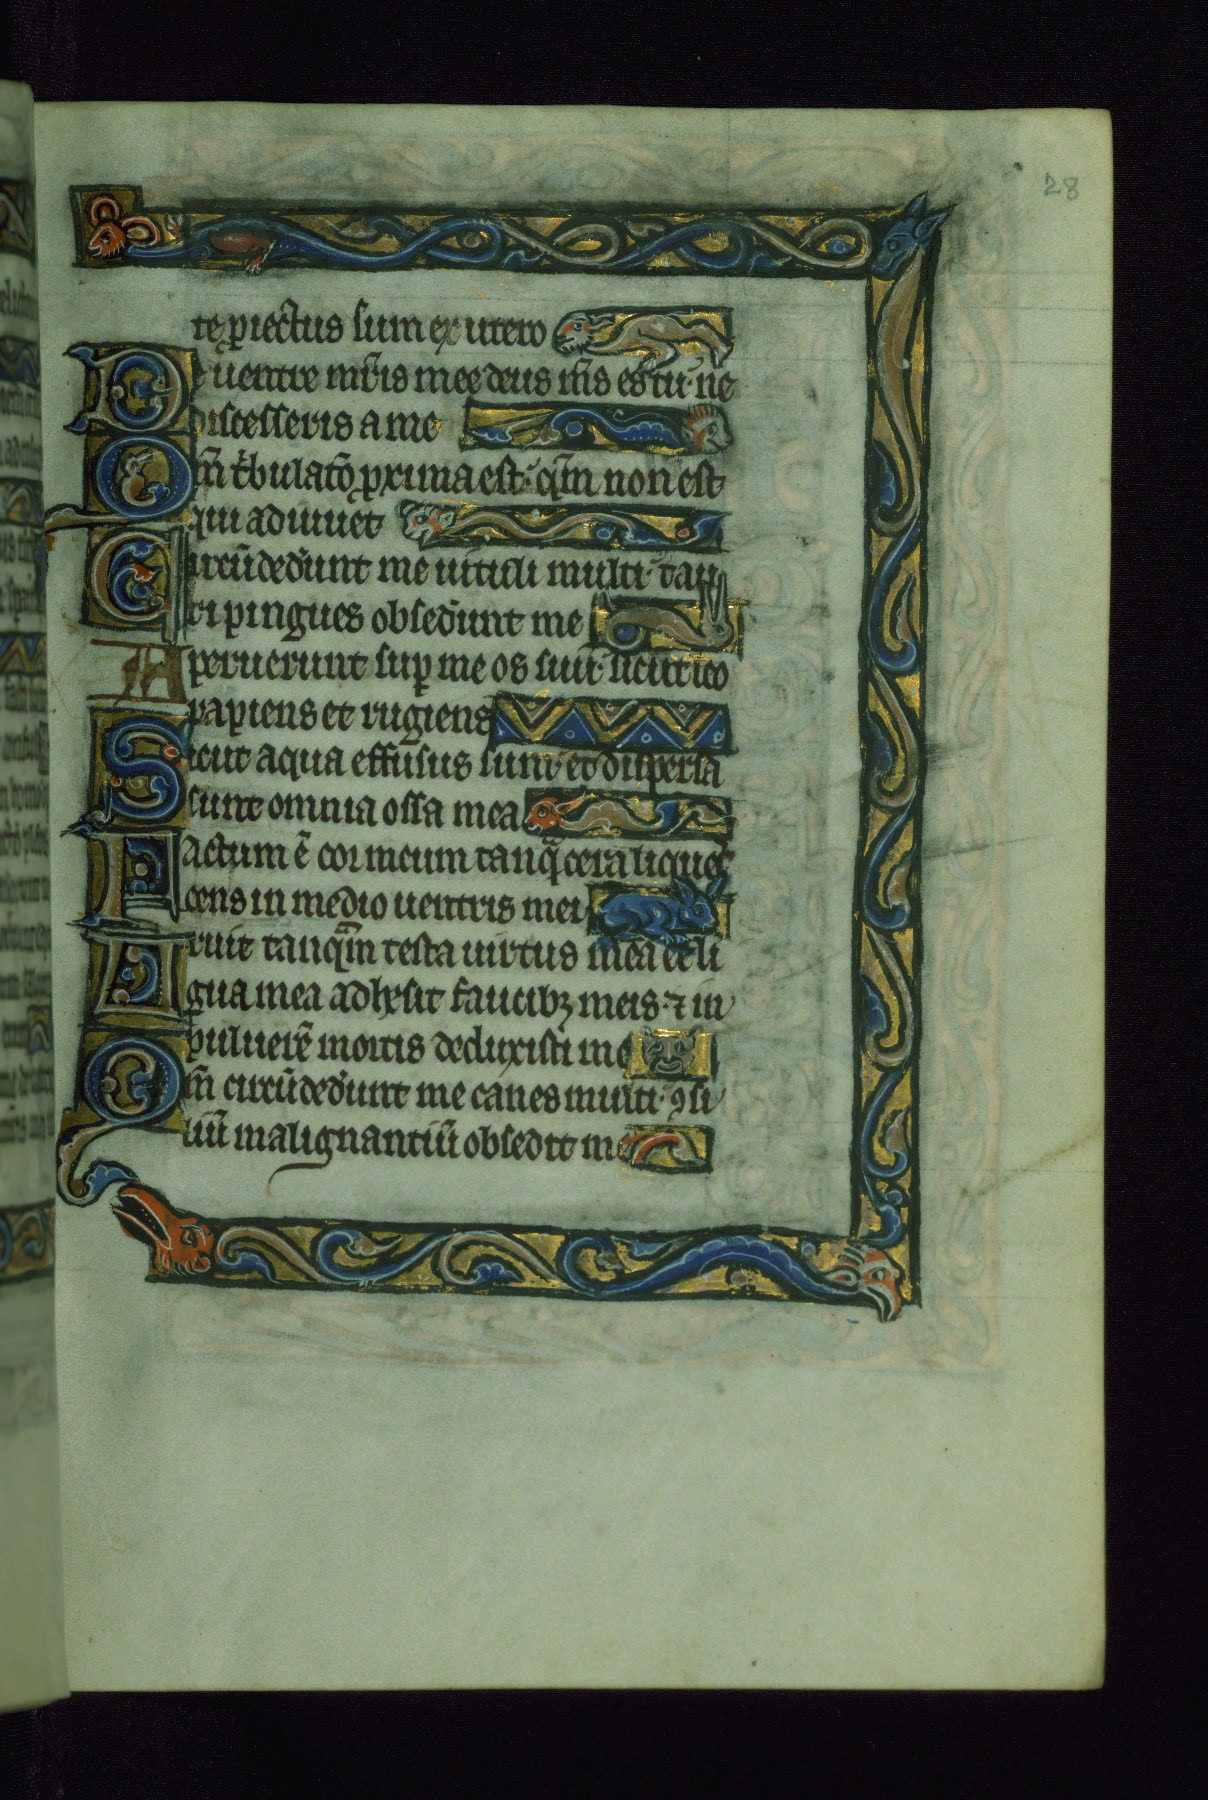 28
te ꝓiectus sum ex utero
De uentre mr̄is mee deus m̄s es tu· ne
discesseris a me
Qm̄ tͥbulatō ꝓxima est· qm̄ non est
qui adiuuet
Circūdedʼunt me uituli multi· tau
ri pingues obsedʼunt me
Aperuerunt suꝑ me os suū· sicut leo
rapiens et rugiens
Sicut aqua effusus sum· et dispersa
sunt omnia ossa mea
Factum ē cor meum tanq̄ cera liques
cens in medio uentris mei
Aruit tanqᵃm testa uirtus mea et li
gua mea adhesit faucibꝫ meis· ⁊ in
puluerē mortis deduxisti me
Qm̄ circūdedʼunt me canes multi· ꝯsi
liū malignantiū obsedit me